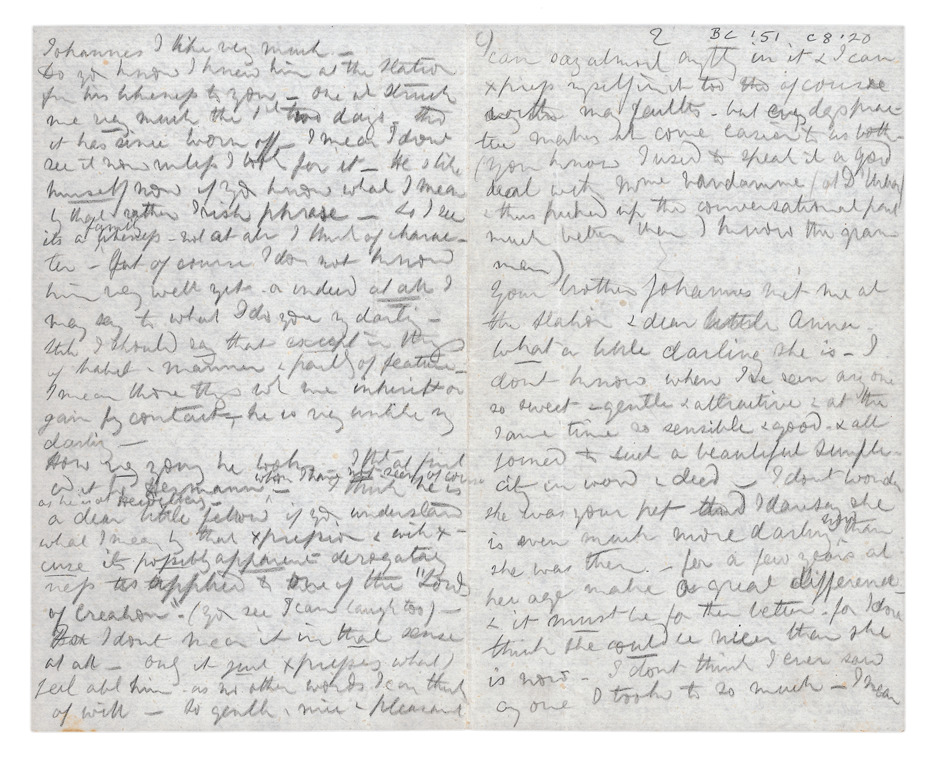 Johannes I like very much. —
Do you know I knew him at the station
for his likeness to you — one at struck
me very much the 1st two days. tho
it has since worn off, I mean I dont
see it now unless I look for it — He is like
himself now if you know what I mean
by that rather Irish phrase — So I see
its a family likeness - not at all I think of charac-
ter — But of course I do not know
him very well yet. or indeed at all I
may say to what I do you my darling —
Still I should say that except in things
of habit - manner & partly of feature —
I mean those things wh one inherits or
gain by contact — he is very unlike my
darling —
How very young he looks.
whom I have not seen of course
as he is at Heidelberg Hermann — I think he is
a dear little fellow if you understand
what I mean by that xpression & will x-
cuse its possibly apparent derogatory
ness as applied to one of the "Lords
of Creation". (you see I can laugh too) —
But I dont mean it in that sense
at all — only it just xpresses what I
feel abt him - as no other words I can think
of will — so gentle, nice & pleasant
2 BC '51 C8:20
c)
can say almost anythg in it & I can
xpress myself in it too tho of course
with many faults - but every days prac-
tice makes it come easier to us both.
(you know I used to speak it a good
deal with Mme Vandamme (at D'Urban)
& thus picked up the conversational part
much better than I know the gram
mar)
Your brother Johannes met me at
the station & dear little Anna.
What a little darling she is — I
dont know when I've seen any one
so sweet - gentle & attractive & at the
same time so sensible & good - & all
joined to such a beautiful simpli-
city in word & deed — I dont wonder
she was your pet and I daresay she
is even much more darling now than
she was then. — for a few years at
her age make a great difference
& it must be for the better - for I dont
think she could be nicer than she
is now - I dont think I ever saw
any one I took to so much — I mean